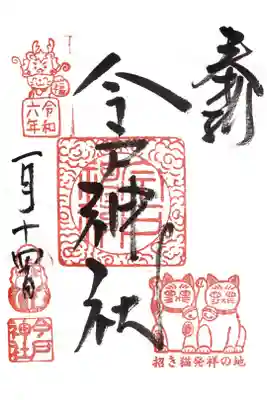 奉拝
今戸神社
令和
六年
福
一月十四日
今戸
神社
招き猫発祥の地